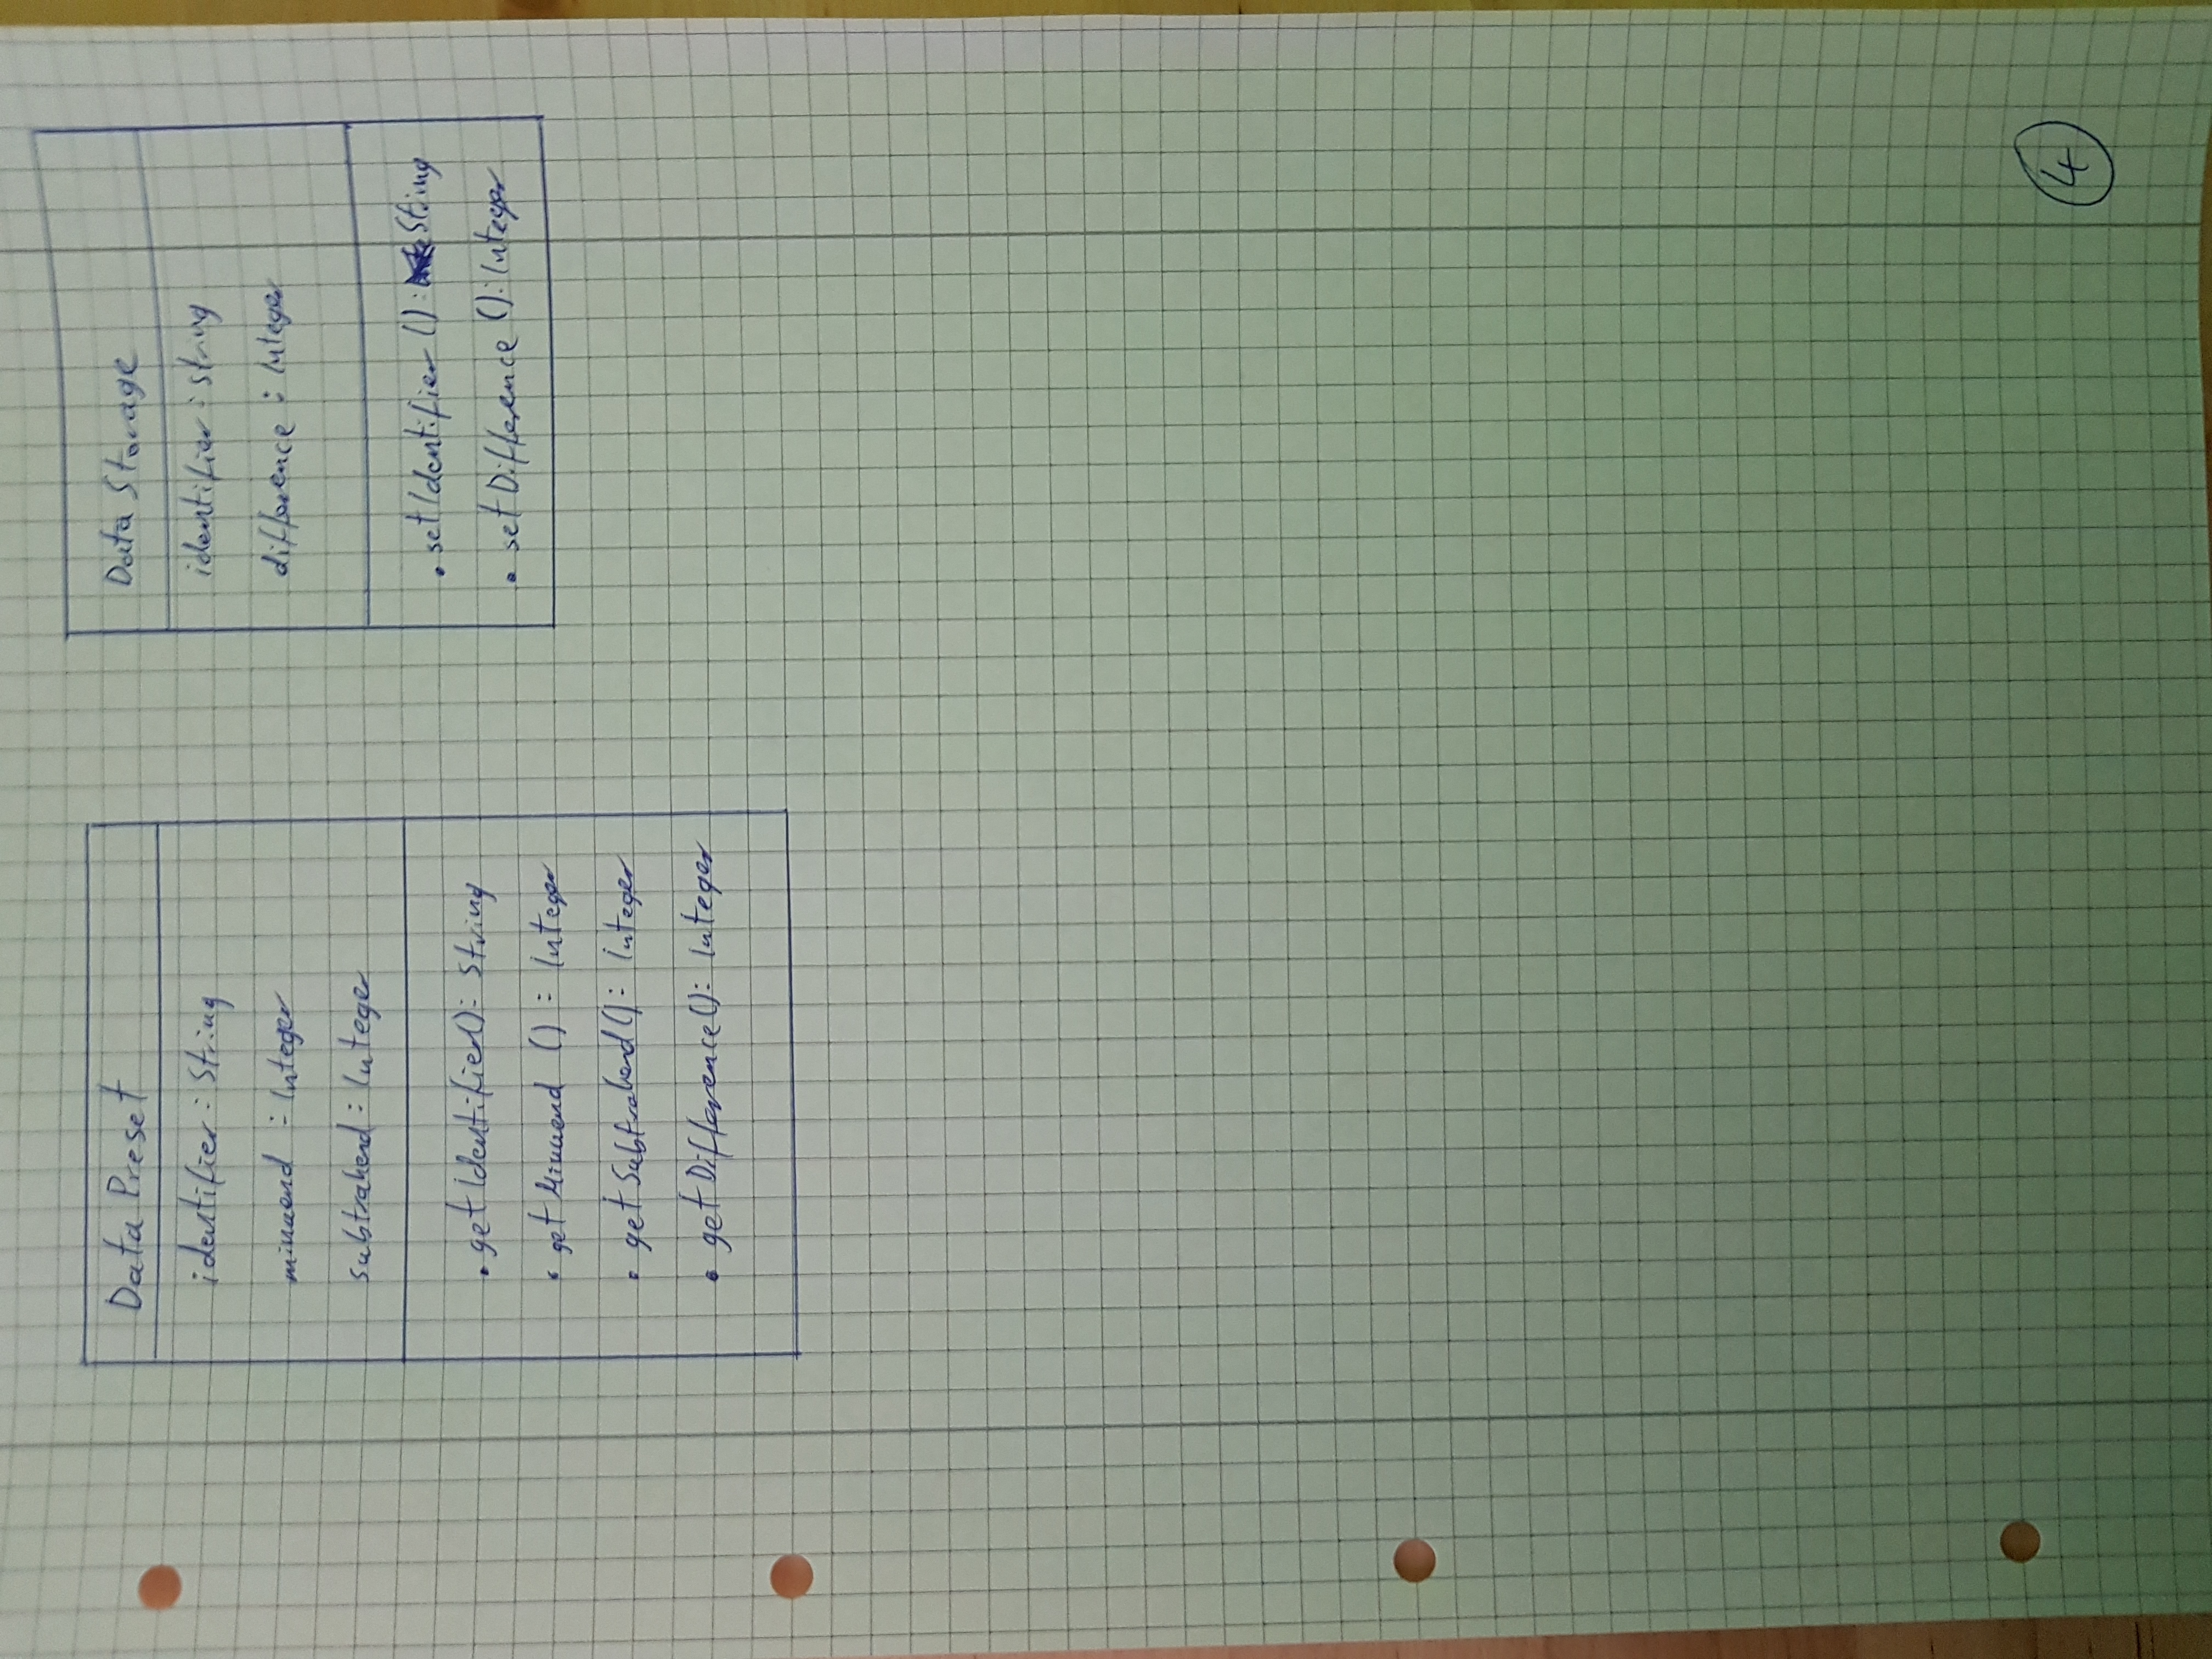 Data Preset
identifier : String
minuend : Integer
subtrahend : Integer
• getIdentifier(): String
• getMinuend () : Integer
• getSubtrahend(): Integer
• getDifference(): Integer
Data Storage
identifier : String
difference : Integer
• setIdentifier (): String
• setDifference (): Integer
4